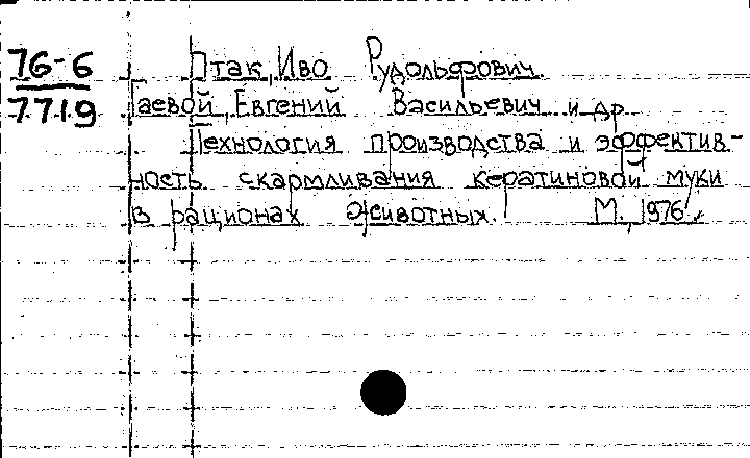 76-6
7719
Птак, Иво Рудольфович.
Гаевой, Евгений Васильевич и др.
Технология производства и эффектив-
ность скармливания кератиновой муки
в рационах животных. М., 1976.